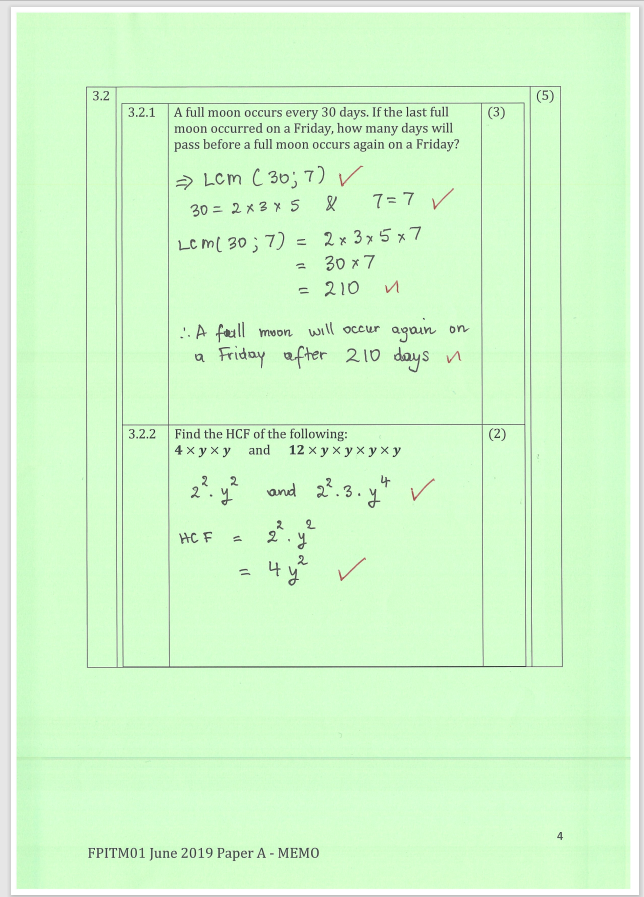 3.2
(5)
3.2.1
A full moon occurs every 30 days. If the last full
moon occurred on a Friday, how many days will
pass before a full moon occurs again on a Friday?
(3)
⇒ LCM (30; 7) ✓
30 = 2 × 3 × 5 & 7 = 7 ✓
LCM(30; 7) = 2 × 3 × 5 × 7
= 30 × 7
= 210 ✓
∴ A full moon will occur again on
a Friday after 210 days ✓
3.2.2
Find the HCF of the following:
(2)
4 × y × y and 12 × y × y × y × y
2². y² and 2².3. y⁴ ✓
HCF = 2². y²
= 4y² ✓
4
FPITM01 June 2019 Paper A - MEMO